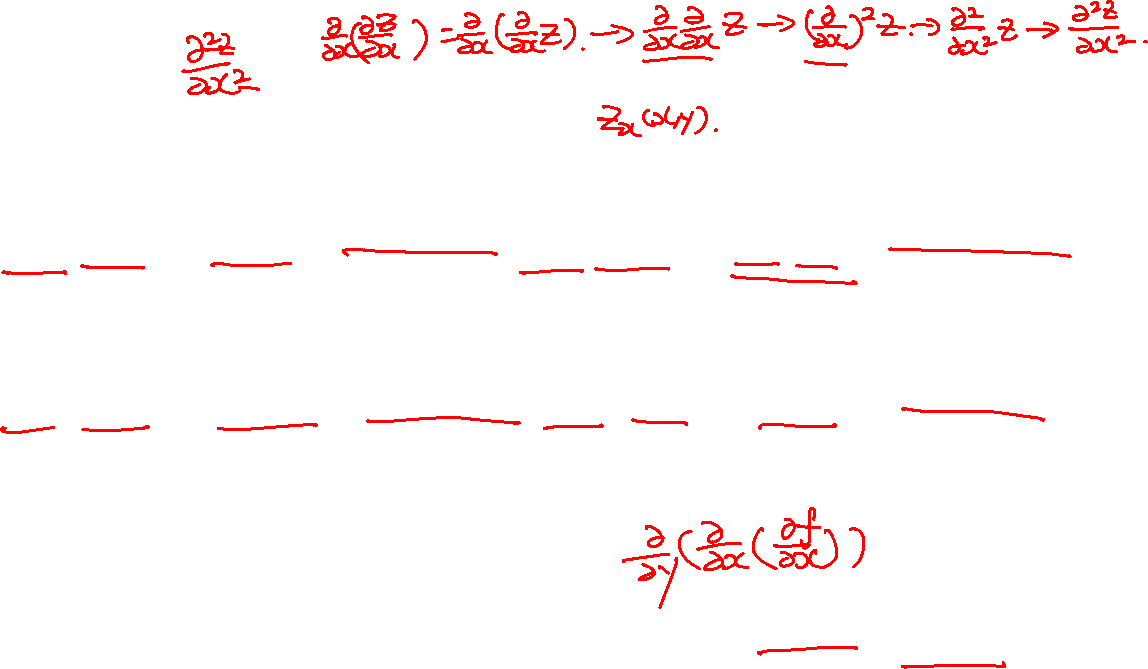 ∂²z/∂x² ∂/∂x(∂z/∂x) = ∂/∂x(∂/∂x z). → ∂/∂x ∂/∂x z → (∂/∂x)² z. → ∂²/∂x² z → ∂²z/∂x².
zₓ(x,y).
∂/∂y(∂/∂x(∂f/∂x))